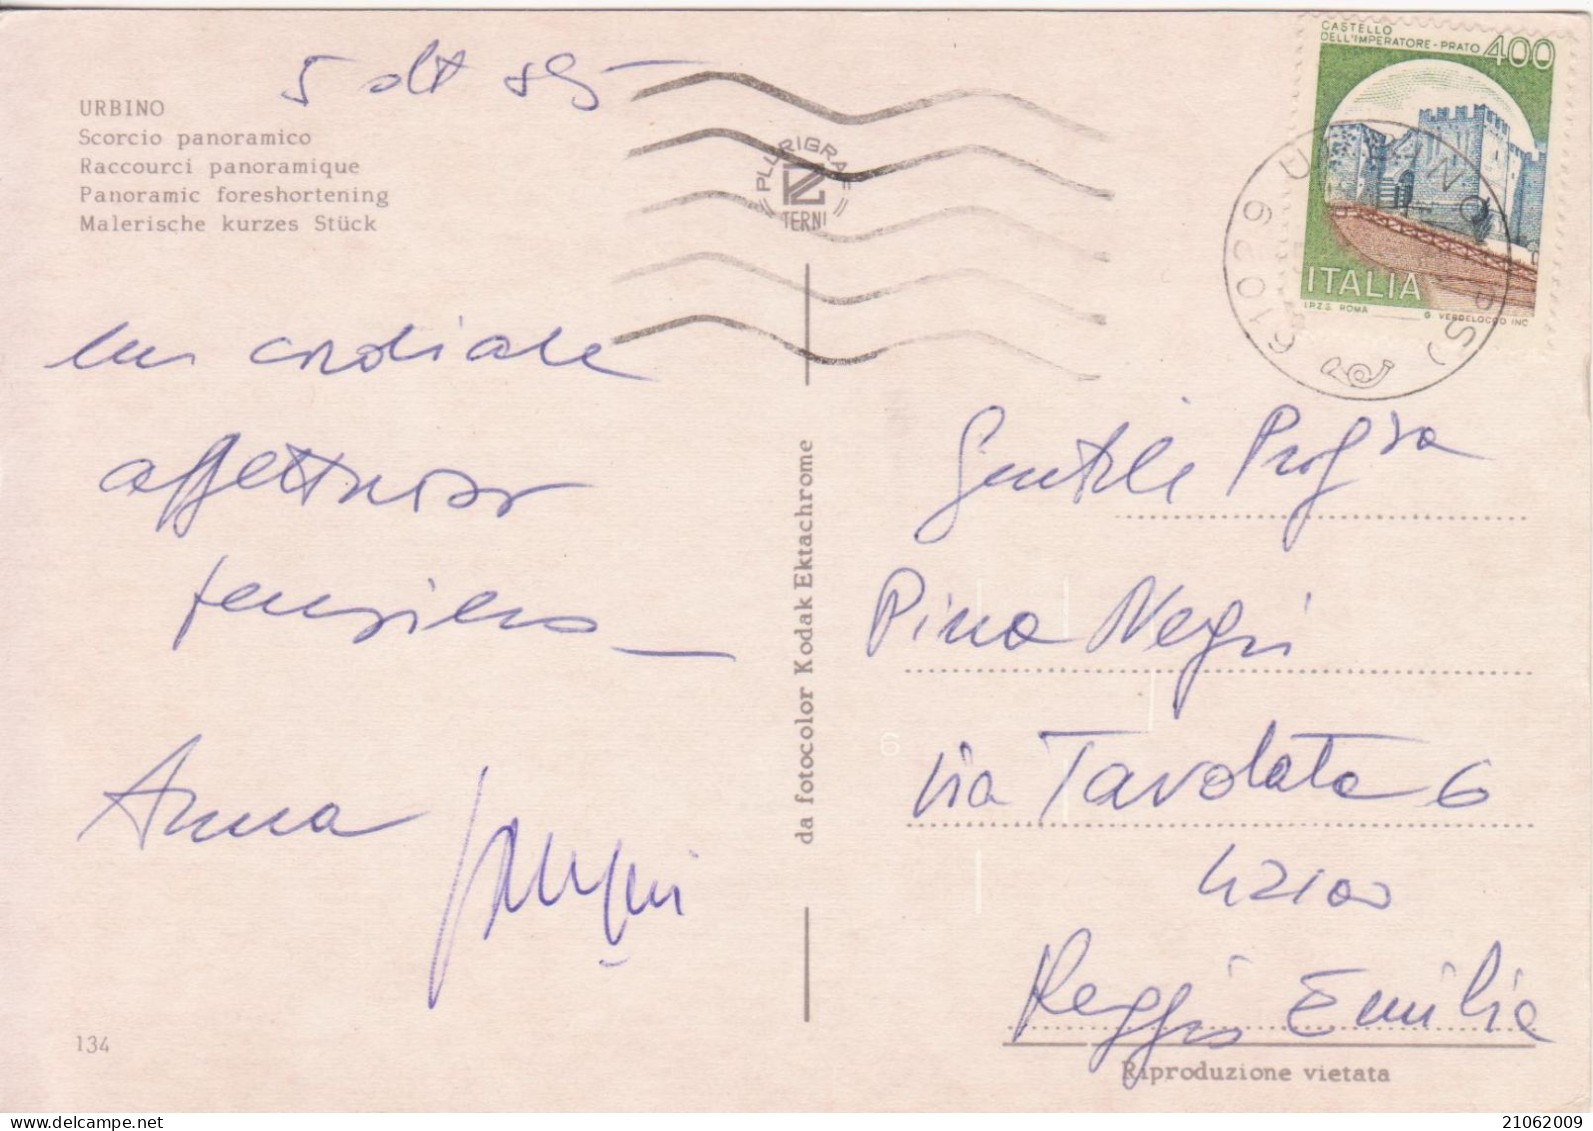 5 ott 85
URBINO
Scorcio panoramico
Raccourci panoramique
Panoramic foreshortening
Malerische kurzes Stück
PLURIGRAF
TERNI
CASTELLO
DELL'IMPERATORE - PRATO 400
ITALIA
I.P.Z.S. ROMA G. VERDELOCCO INC.
61029 URBINO (PS)
un cordiale
affettuoso
pensiero
Anna
da fotocolor Kodak Ektachrome
Gentile Prof.ssa
Pina Negri
via Tavolata 6
42100
Reggio Emilia
134
Riproduzione vietata
21062009